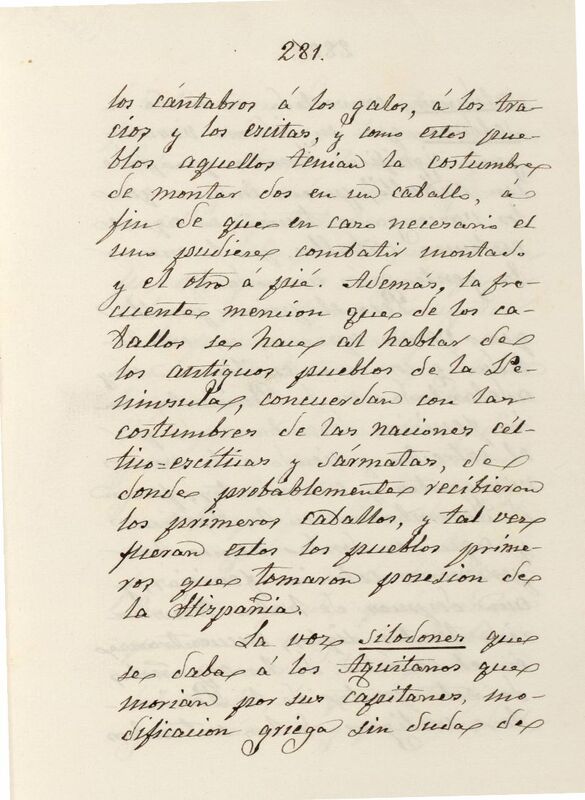 281.
los cántabros á los galos, á los tra-
cios y los escitas, y como estos pue-
blos aquellos tenian la costumbre
de montar dos en un caballo, á
fin de que en caso necesario el
uno pudiese combatir montado
y el otro á pié. Además, la fre-
cuente mencion que de los ca-
ballos se hace al hablar de
los antiguos pueblos de la Pe-
ninsula, concuerdan con las
costumbres de las naciones cél-
tico=escíticas y sármatas, de
donde probablemente recibieron
los primeros caballos, y tal vez
fueran estos los pueblos prime-
ros que tomaron posesion de
la Hispania.
La voz silodones que
se daba á los Aquitanos que
morian por sus capitanes, mo-
dificacion griega sin duda de